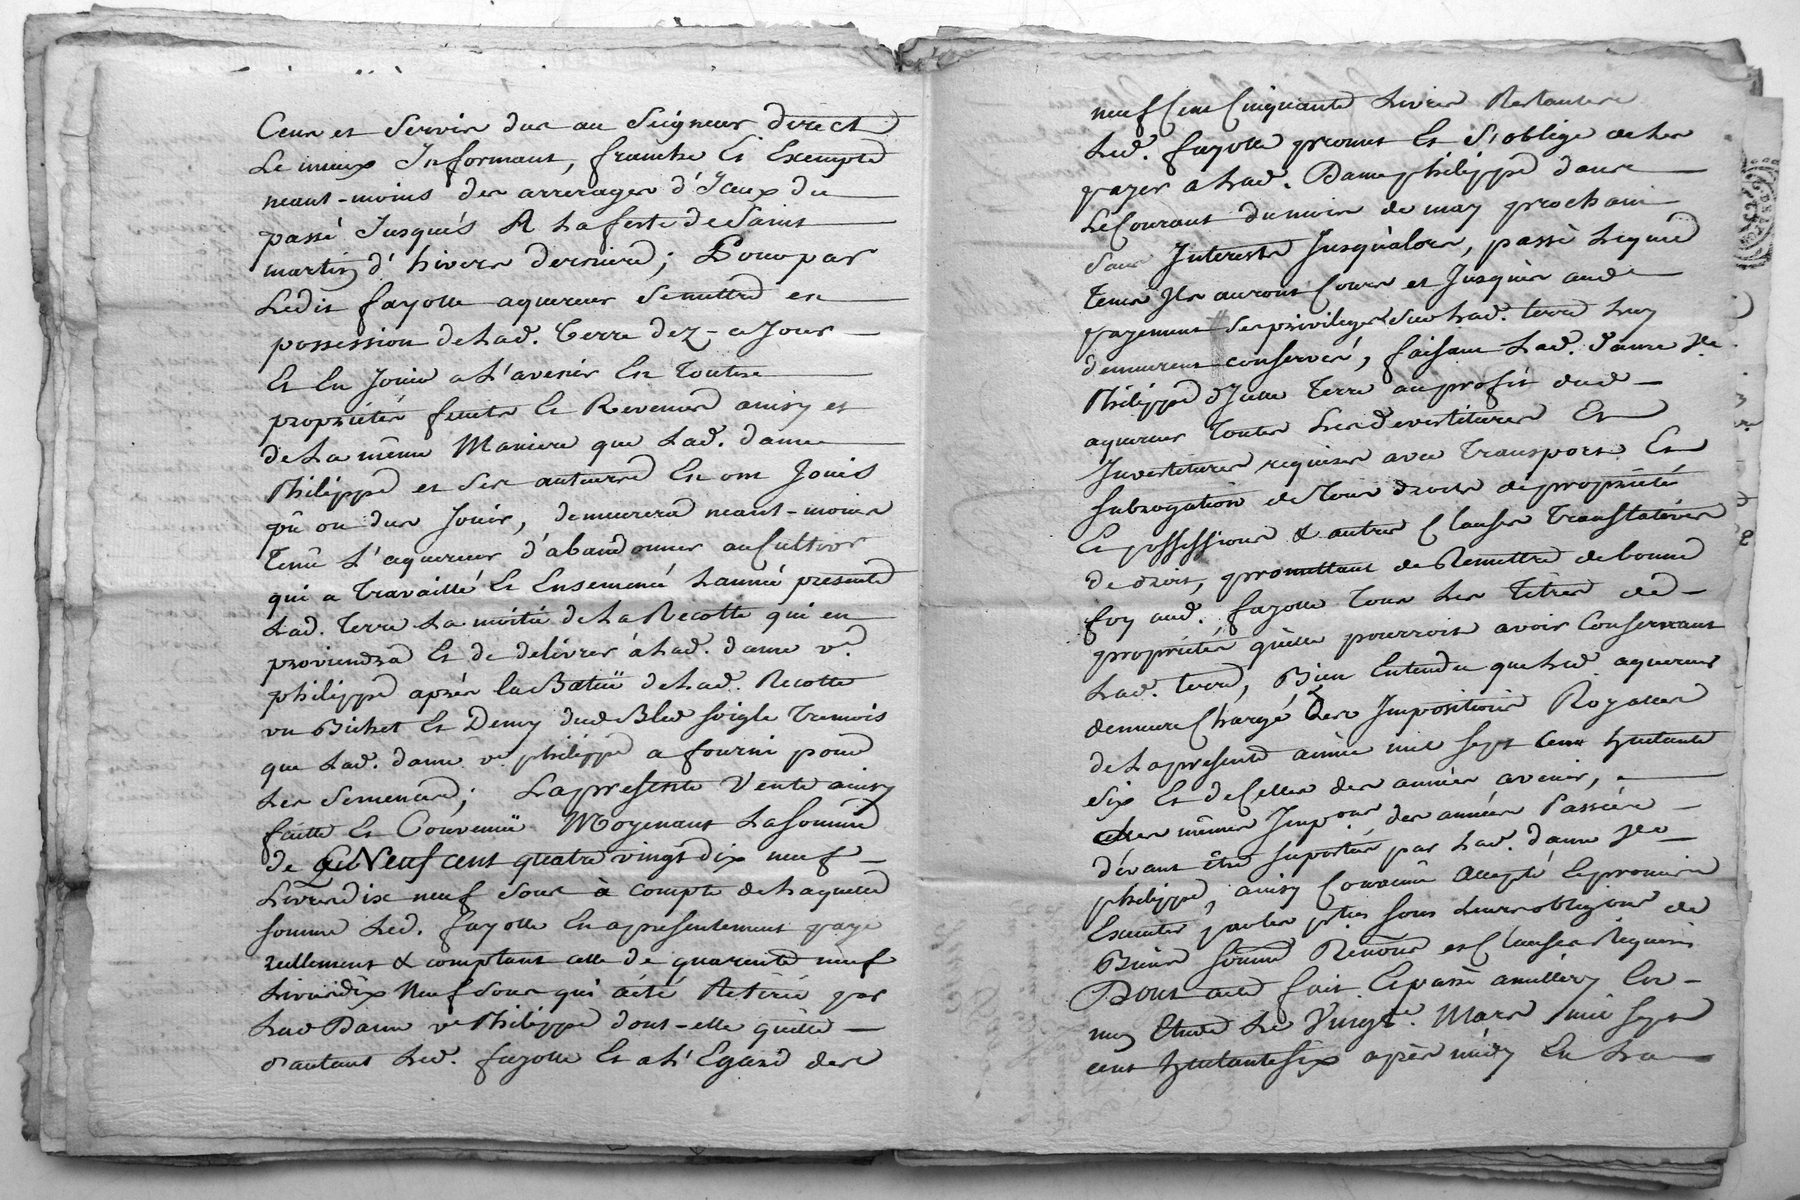 Cens et servis dus au Seigneur direct
Le mieux Informant, franche Et Exempte
neant-moins des arrerages d'Iceux du
passé Jusqués A La feste de Saint
martin d'hivers derniere; Pour par
Ledit fayolle aquereur Se mettre en
possession de Lad. Terre dez-ce Jour
Et En Jouir a L'avenir En Toutes
proprietés fruits Et Revenus ainsy et
de La même Maniere que Lad. dame
Philippe et Ses auteurs En ont Jouis
pû ou dus Jouir, demeurera neant-moins
Tenû L'aquereur d'abandonner au Cultivor
qui a Travaillé Et Ensemencé Lannée presente
Lad. Terre La moitié de La Recolte qui en
proviendra Et de delivrer á Lad. dame ve.
philippe après la Batüe de Lad. Recolte
un Bichet Et Demy dud Bled Soigle Tremois
que Lad. dame ve philippe a fourni pour
Les Semences; La presente Vente ainsy
faitte Et Convenüe Moyenant La Somme
de Neuf cent quatre vingt dix neuf
Livres dix neuf Sous à compte de Laquelle
Somme Led. fayolle En a presentement payé
réellement & comptant celle de quarente neuf
Livres dix Neuf Sous qui à été Retirée par
Lad Dame ve Philippe dont-elle quitte
d'autant Led. fayolle Et a L'Egard des
neuf Cent Cinquante Livres Restantes
Led. fayolle promet Et S'oblige de Les
payer a Lad. Dame philippe dans
Le Courant du mois de may prochain
Sans Interests Jusqu'alors, passé Lequel
tems Ils auront Cours et Jusques aud
payement # Ses privileges Sur Lad. terre Luy
demeurent conservés, faisant Lad. dame ve
Philippe d'Icelle Terre au profit dud
aquereur Toutes Les devestitures Et
Investitures requises avec Transport Et
Subrogation de Tous droits de propriété
Et possessions & autres Clauses Translatives
de droit, promettant de Remettre de bonne
foy aud. fayolle Tous Les Titres de
propriétés qu'elle pourroit avoir Conservant
Lad. terre, Bien Entendu que Led aquereur
demeure Chargé des Impositions Royalles
de La presente année mil Sept Cent huitante
Six Et de Celles des années avenir,
Les mêmes Impons des années Passées
dévant être Suportées par Lad. dame ve
philippe, ainsy Convenû Accepté Et promis
Executer par les pties Sous Leurs obligions de
Biens Soumis Renons et Clauses Requises
Dont acte fait Et passé a millery En
mon Etude Le Vingt. Mars mil Sept
cent huitante Six après midy En La